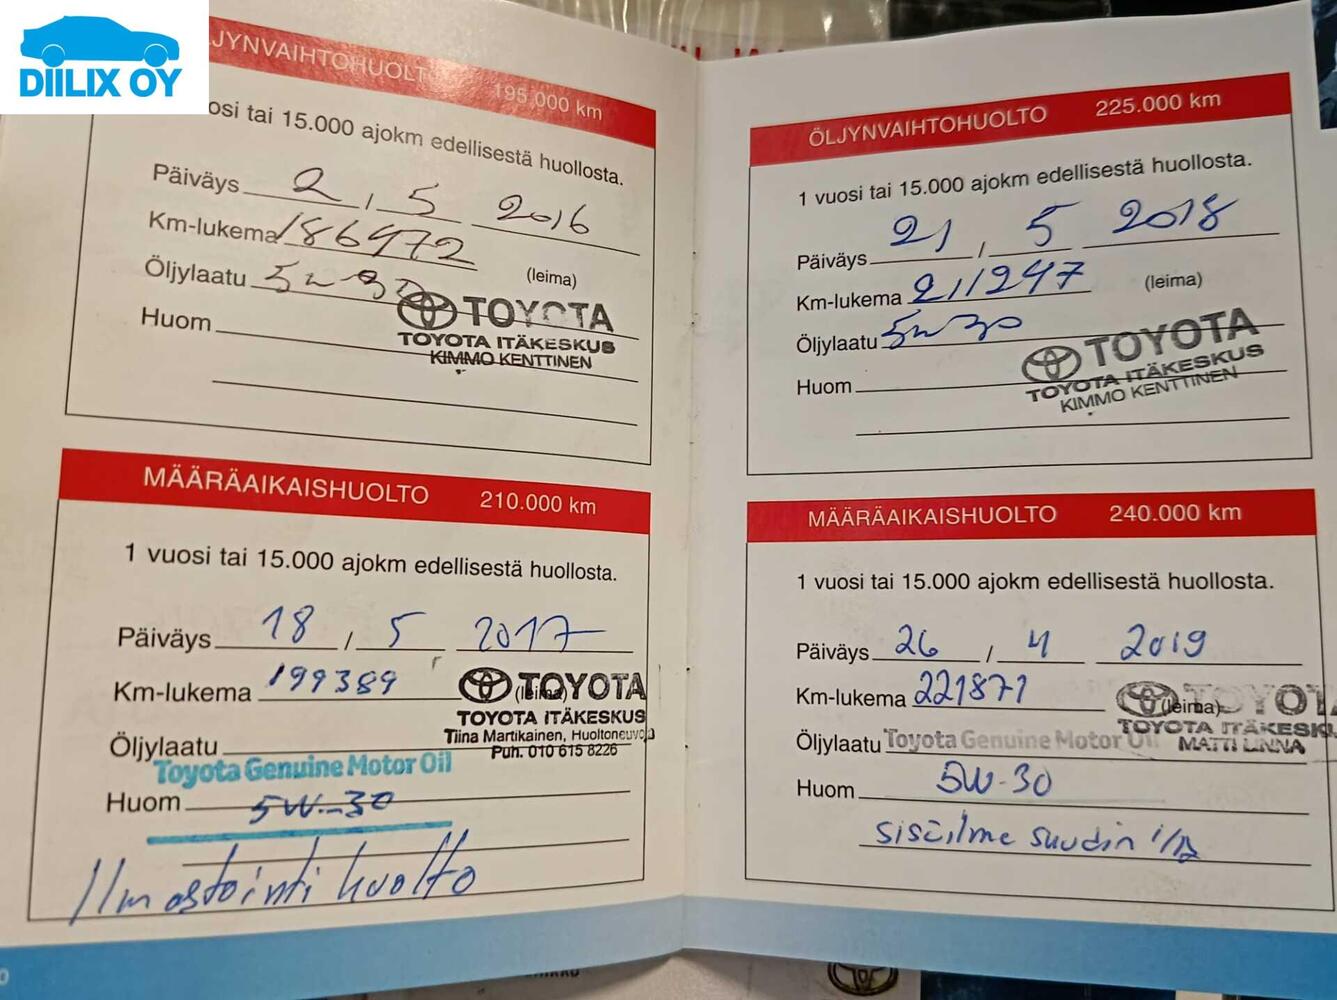 DIILIX OY
JYNVAIHTOHUOLTO 195.000 km
osi tai 15.000 ajokm edellisestä huollosta.
Päiväys 2 / 5 2016
Km-lukema 186472
Öljylaatu 5w30 (leima)
Huom
TOYOTA
TOYOTA ITÄKESKUS
KIMMO KENTTINEN
MÄÄRÄAIKAISHUOLTO 210.000 km
1 vuosi tai 15.000 ajokm edellisestä huollosta.
Päiväys 18 / 5 2017
Km-lukema 199389 (leima)
TOYOTA
TOYOTA ITÄKESKUS
Tiina Martikainen, Huoltoneuvoja
Puh. 010 615 8226
Öljylaatu
Toyota Genuine Motor Oil
Huom 5W-30
Ilmastointi huolto
ÖLJYNVAIHTOHUOLTO 225.000 km
1 vuosi tai 15.000 ajokm edellisestä huollosta.
Päiväys 21 / 5 2018
Km-lukema 211247 (leima)
Öljylaatu 5w30
Huom
TOYOTA
TOYOTA ITÄKESKUS
KIMMO KENTTINEN
MÄÄRÄAIKAISHUOLTO 240.000 km
1 vuosi tai 15.000 ajokm edellisestä huollosta.
Päiväys 26 / 4 2019
Km-lukema 221871 (leima)
TOYOT
TOYOTA ITÄKESKU
MATTI LINNA
Öljylaatu Toyota Genuine Motor Oil
Huom 5W-30
sisäilma suodin